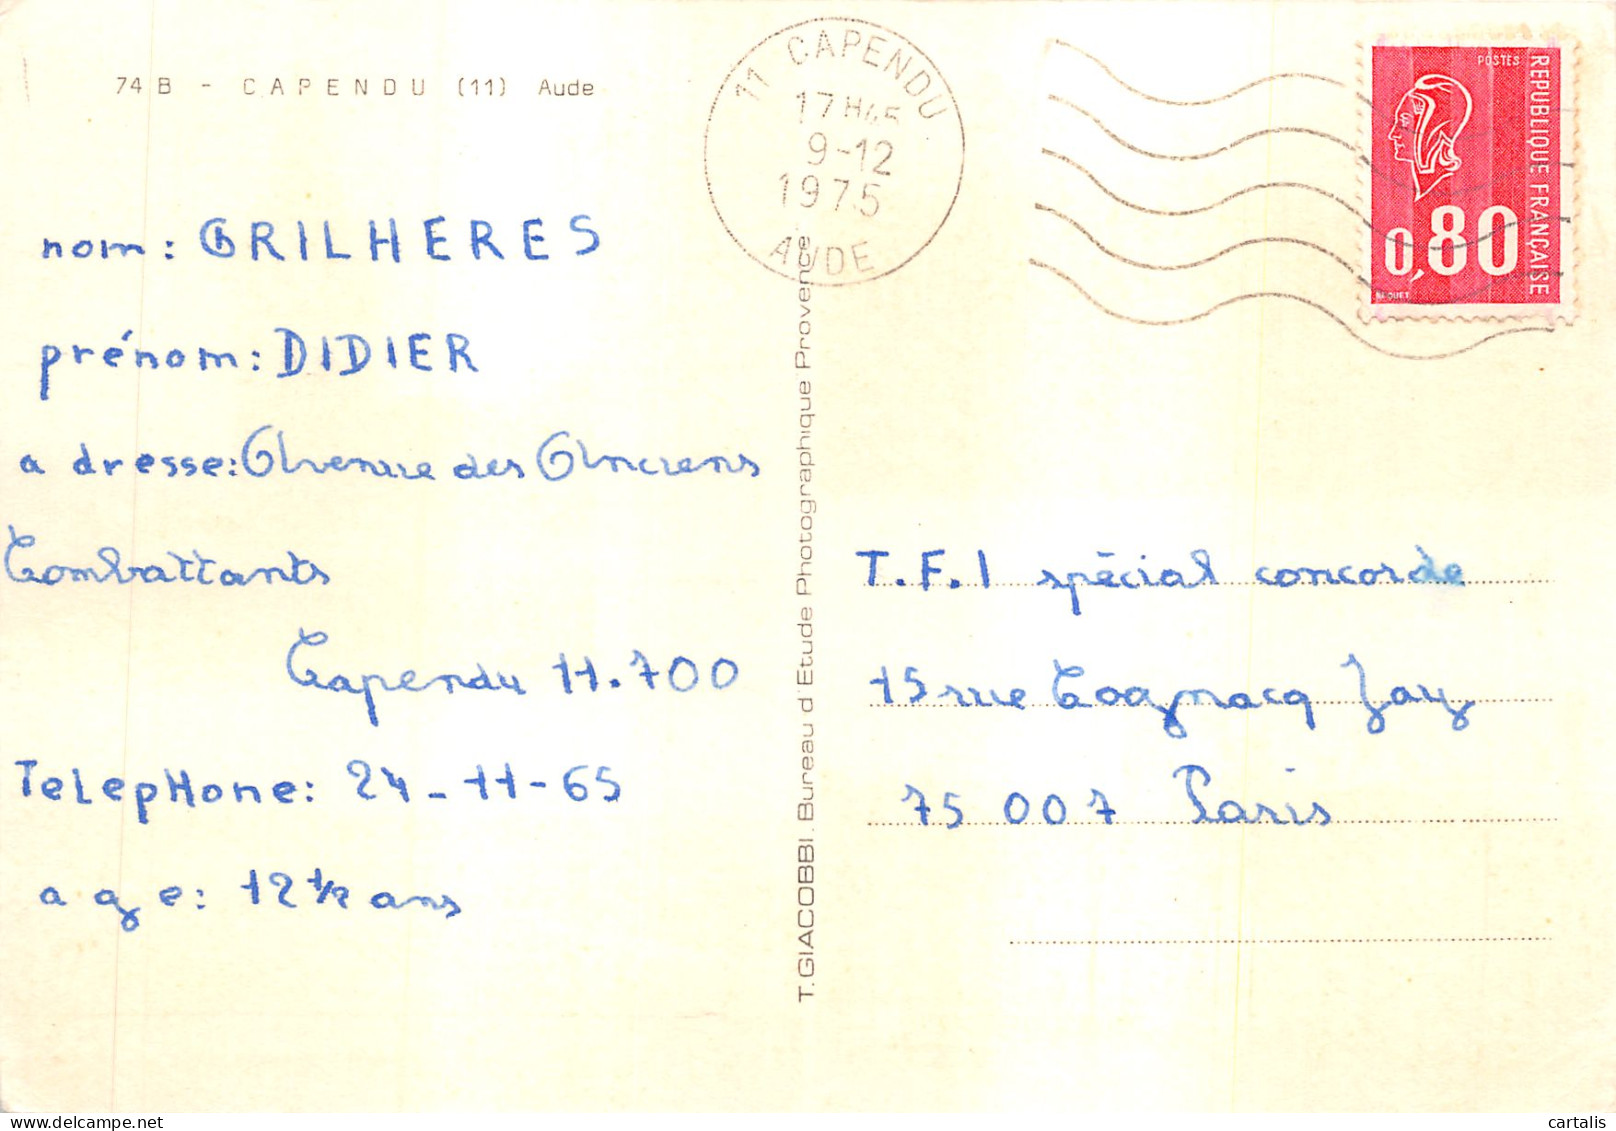 74 B - CAPENDU (11) Aude
11 CAPENDU
17H45
9-12
1975
AUDE
POSTES
REPUBLIQUE FRANÇAISE
0,80
BEQUET
nom: GRILHERES
prénom: DIDIER
adresse: Avenue des Anciens
Combattants
Capendu 11.700
TELEPHONE: 24-11-65
age: 12 1/2 ans
T. GIACOBBI. Bureau d'Etude Photographique Provence
T.F.1 spécial concorde
15 rue Cognacq Jay
75 007 Paris
cartalis
www.delcampe.net